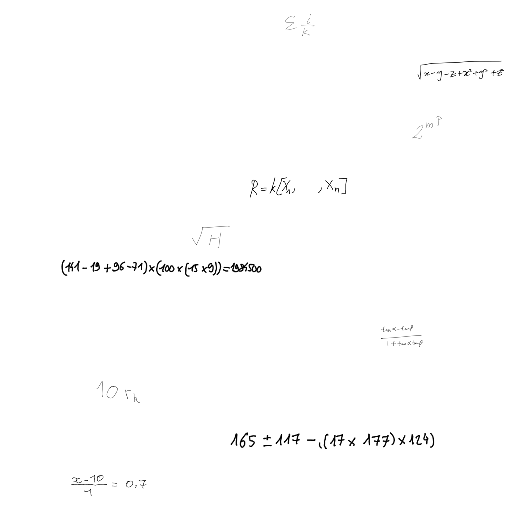 Σ i/k
√(x-y-z+x²+y²+z²)
2^{m^p}
R = k[X₁,   , Xₙ]
√H
(141-19+96-71)×(-100×(-15×9))=1984500
(tan α - tan β)/(1 + tan α tan β)
10 r_h
165 ± 117 - ,(17 × 177) × 124)
(x-10)/1 = 0,7